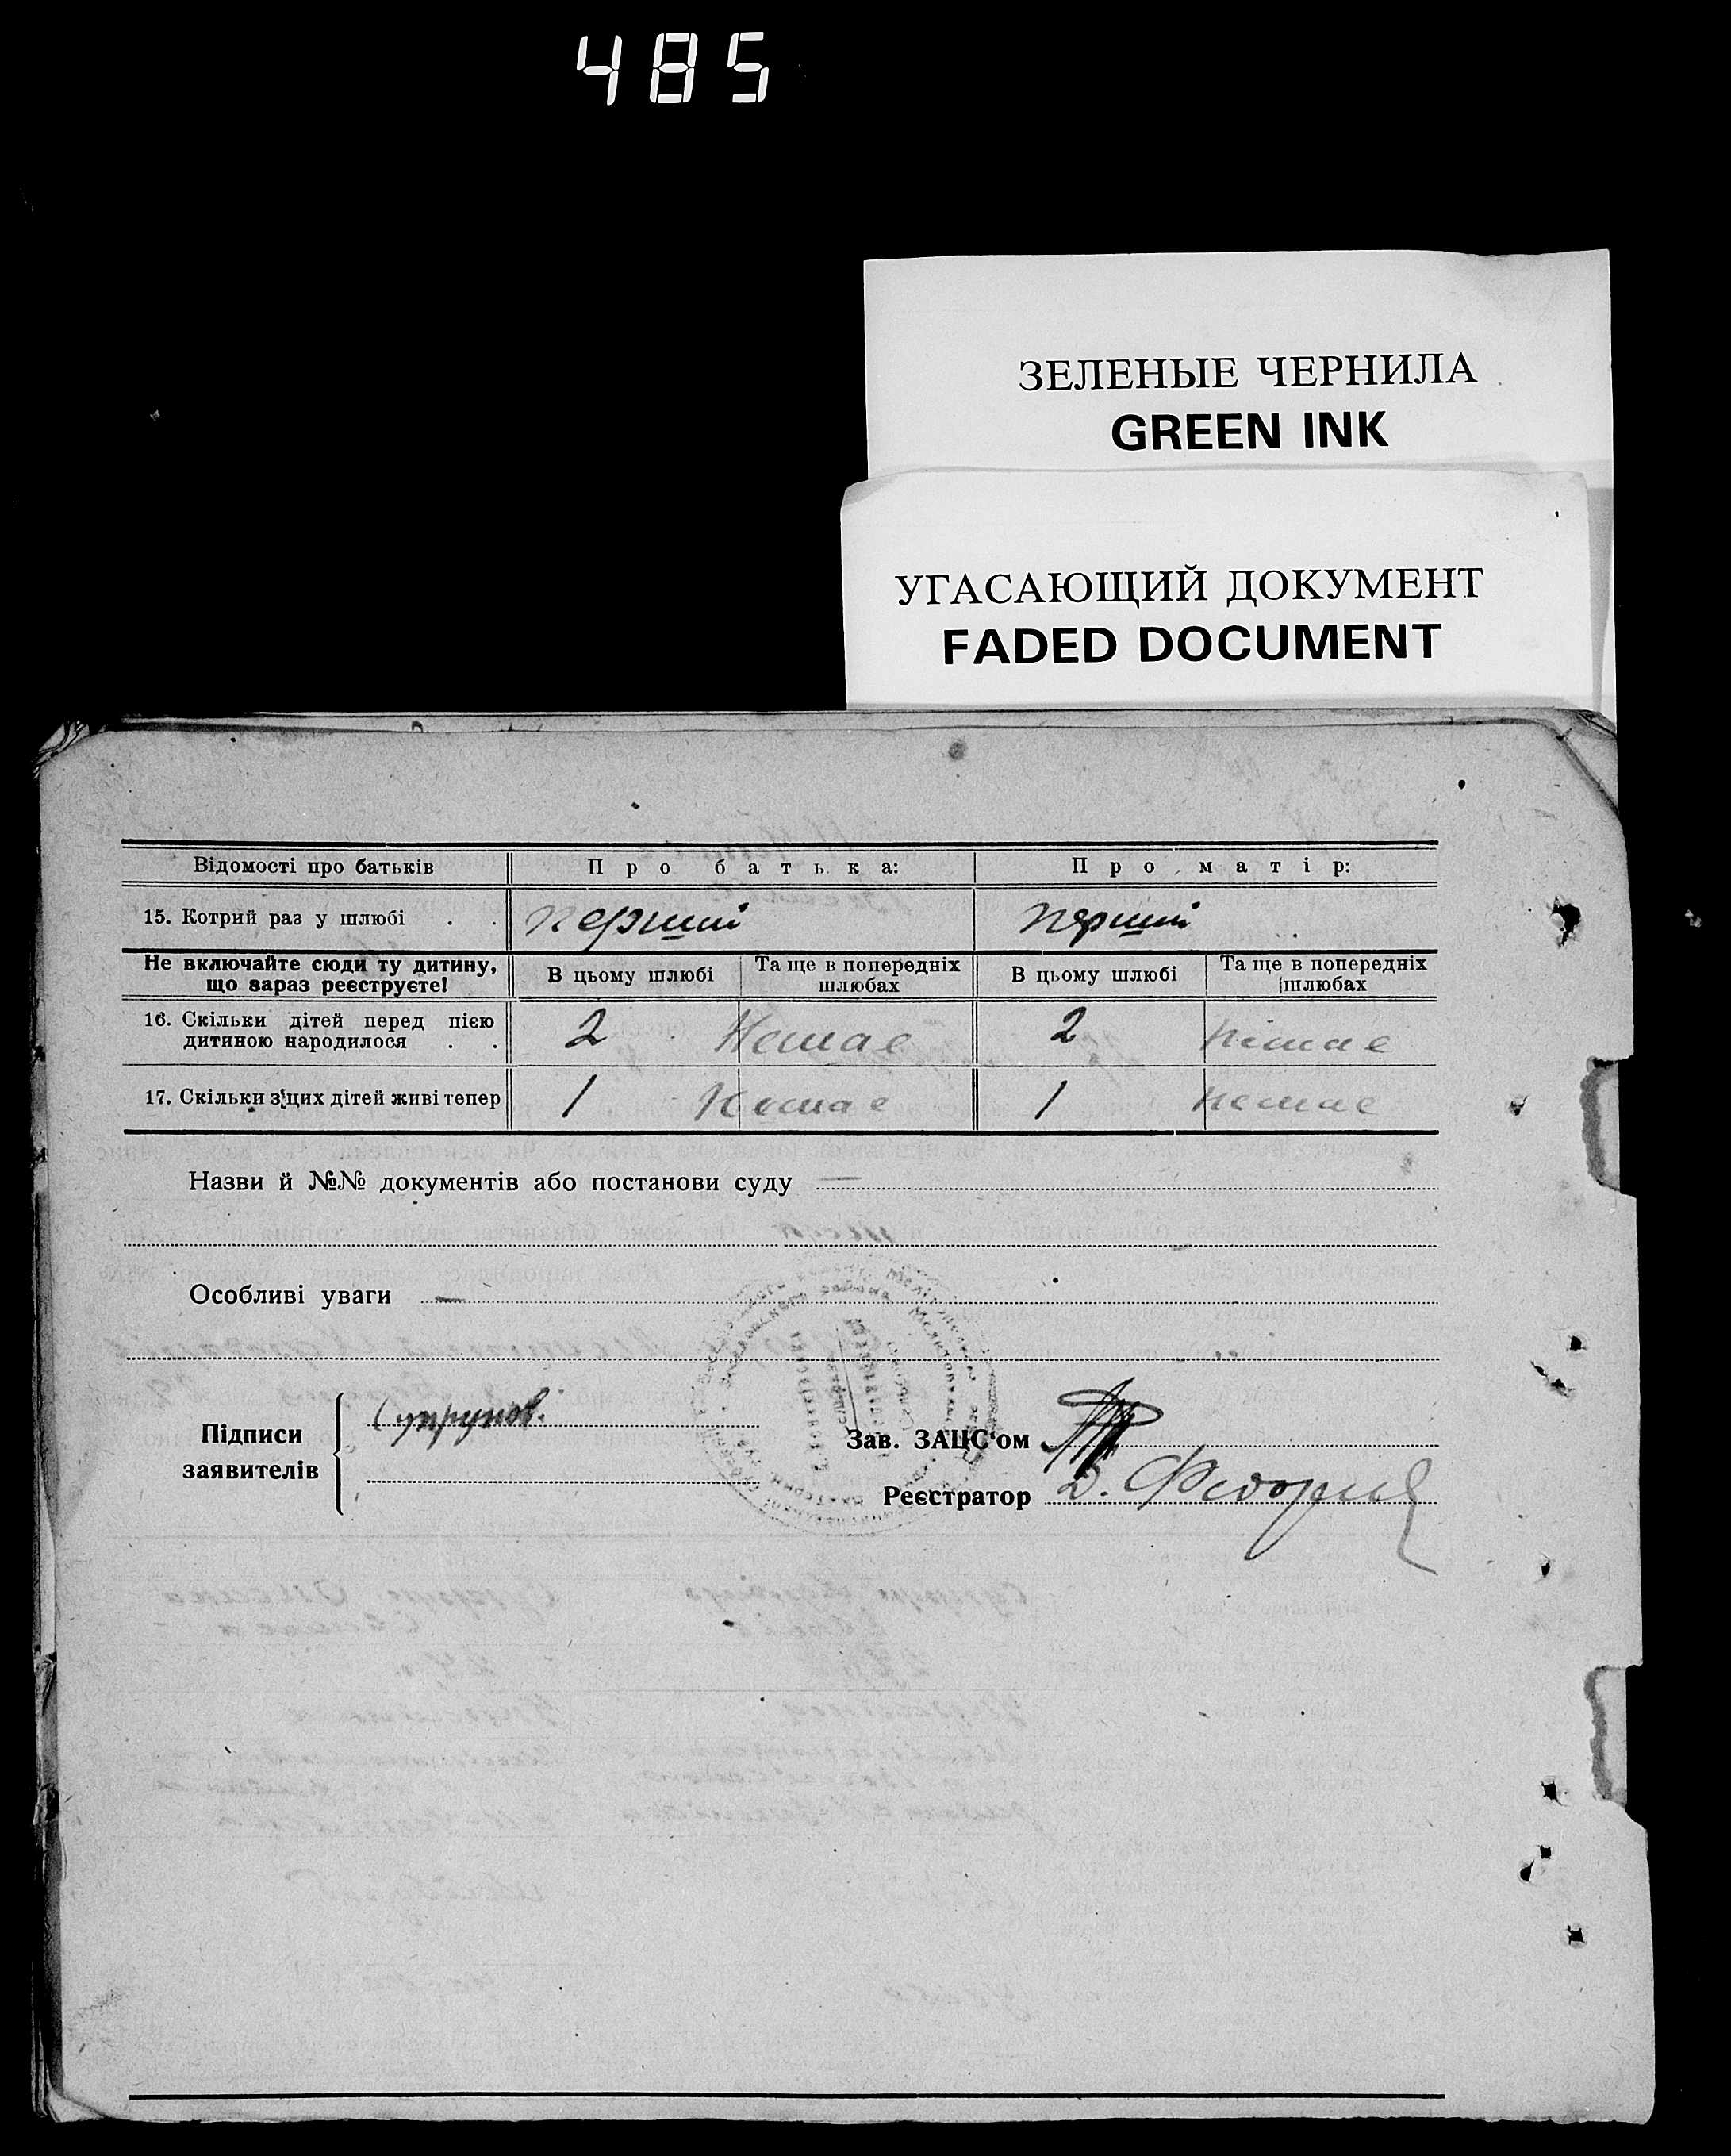 485
ЗЕЛЕНЫЕ ЧЕРНИЛА
GREEN INK
УГАСАЮЩИЙ ДОКУМЕНТ
FADED DOCUMENT
Відомості про батьків Про батька: Про матір:
15. Котрий раз у шлюбі . . перший перший
Не включайте сюди ту дитину, що зараз реєструєте! В цьому шлюбі Та ще в попередніх шлюбах В цьому шлюбі Та ще в попередніх шлюбах
16. Скільки дітей перед цією дитиною народилося . . 2 Немає 2 Немає
17. Скільки з цих дітей живі тепер 1 Немає 1 Немає
Назви й №№ документів або постанови суду —
Особливі уваги —
Підписи заявителів Супрунов.
Зав. ЗАЦС'ом
Реєстратор Д.